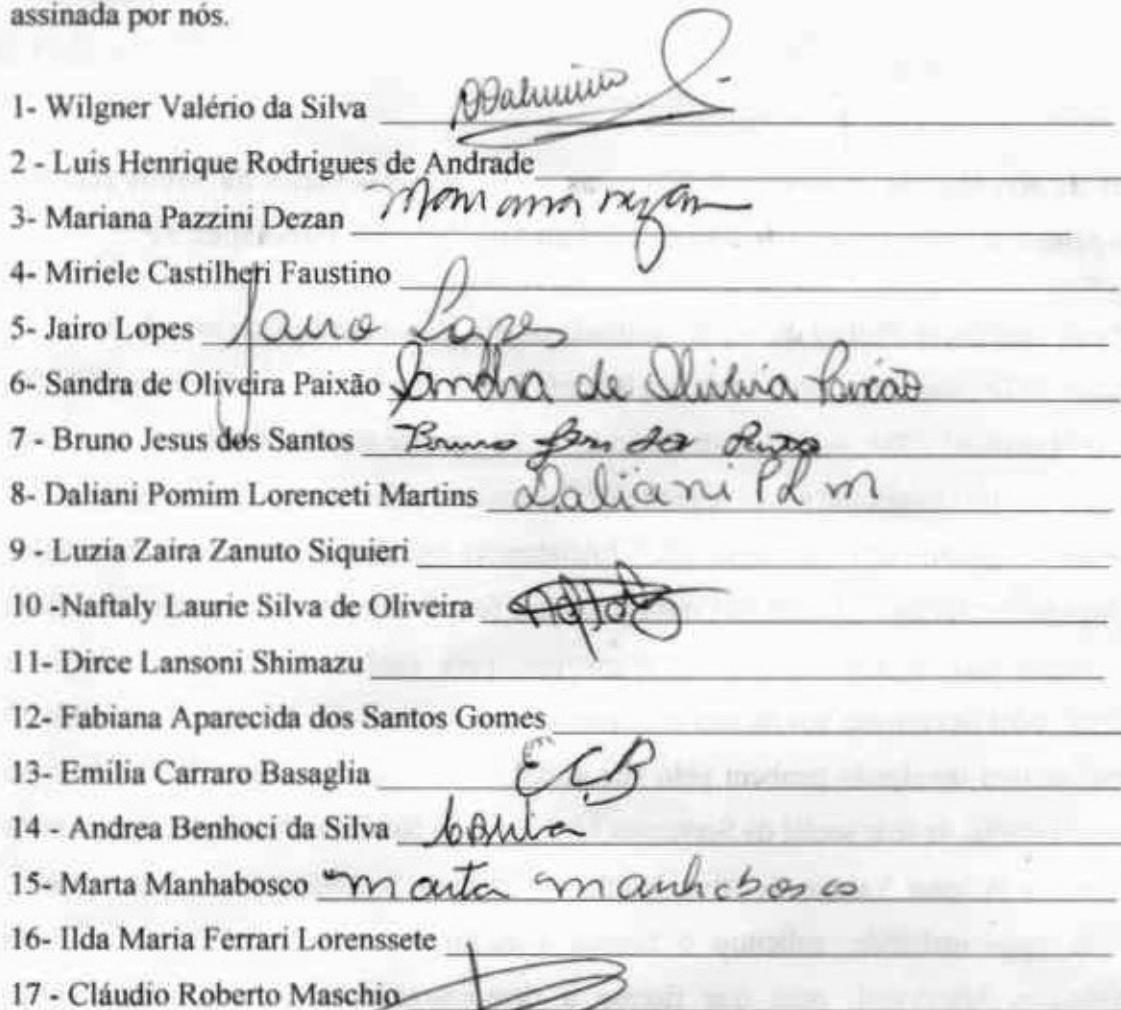 assinada por nós.
1- Wilgner Valério da Silva
2 - Luis Henrique Rodrigues de Andrade
3- Mariana Pazzini Dezan Mariana
4- Miriele Castilheri Faustino
5- Jairo Lopes Jairo Lopes
6- Sandra de Oliveira Paixão Sandra de Oliveira Paixão
7 - Bruno Jesus dos Santos Bruno
8- Daliani Pomim Lorenceti Martins Daliani P L m
9 - Luzia Zaira Zanuto Siquieri
10 -Naftaly Laurie Silva de Oliveira
11- Dirce Lansoni Shimazu
12- Fabiana Aparecida dos Santos Gomes
13- Emilia Carraro Basaglia ECB
14 - Andrea Benhoci da Silva
15- Marta Manhabosco Marta Manhabosco
16- Ilda Maria Ferrari Lorenssete
17 - Cláudio Roberto Maschio